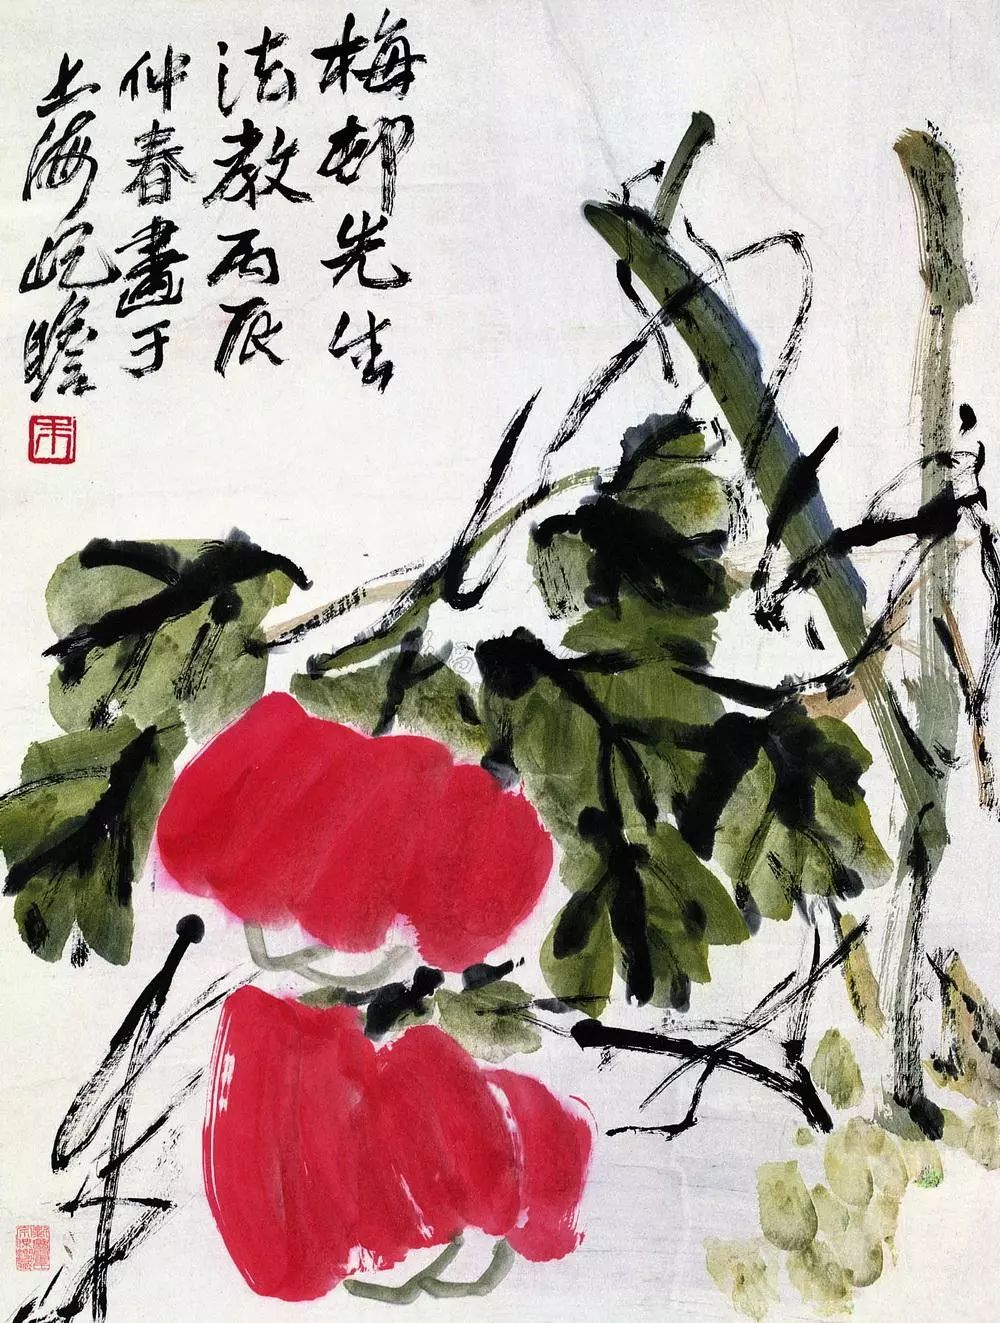 梅邨先生
法教丙辰
仲春畫于
上海屺瞻
朱